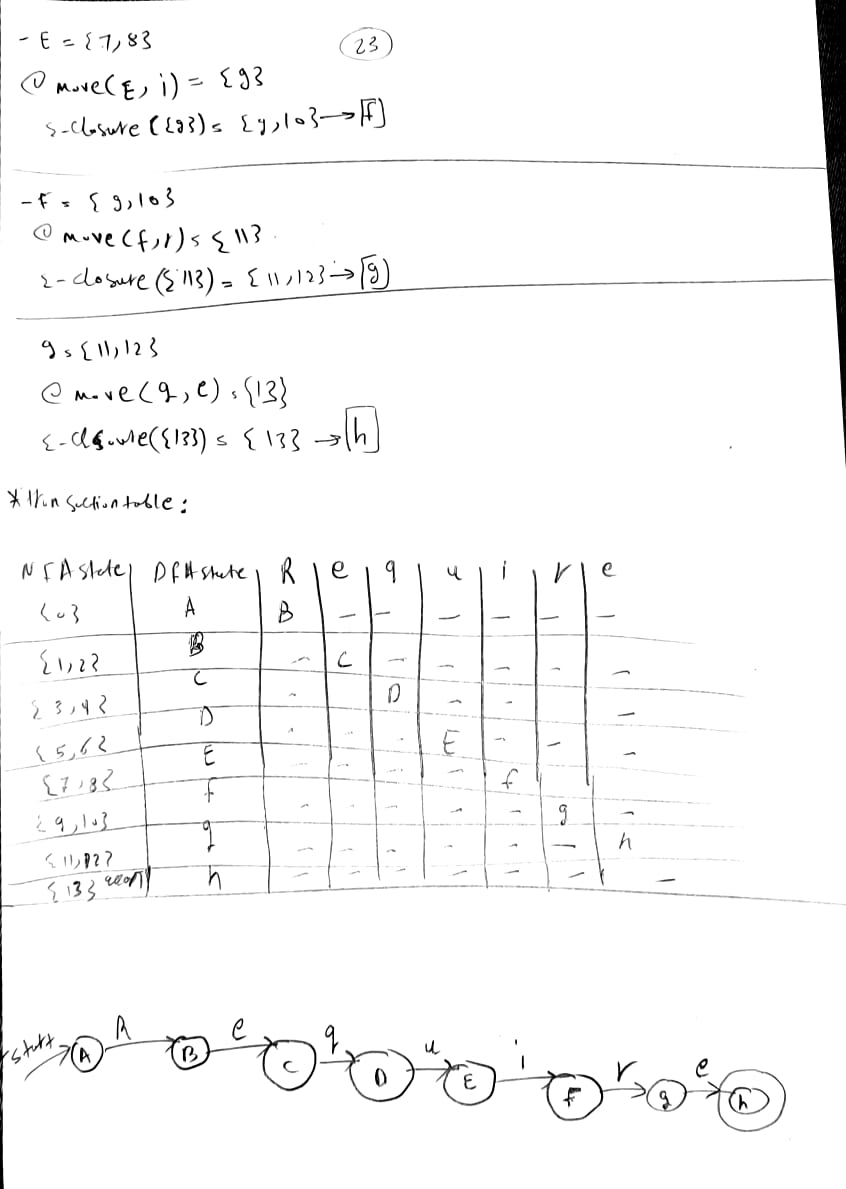 - E = {7,8}
23
@ move(E, i) = {9}
ε-closure ({9}) = {9,10} → F
- F = {9,10}
@ move(f,r) = {11}
ε-closure ({11}) = {11,12} → g
g = {11,12}
@ move(g,e) = {13}
ε-closure({13}) = {13} → h
NFA state DFA state R e q u i r e
{0} A B — — — — — —
{1,2} B - C - - - - -
{3,4} C - D - - -
{5,6} D - - - E - - -
{7,8} E - - - - f
{9,10} f - - - - - g -
{11,12} g - - - - - - h
{13} h - - - - - - -
start A R B e C q D u E i F r g e h